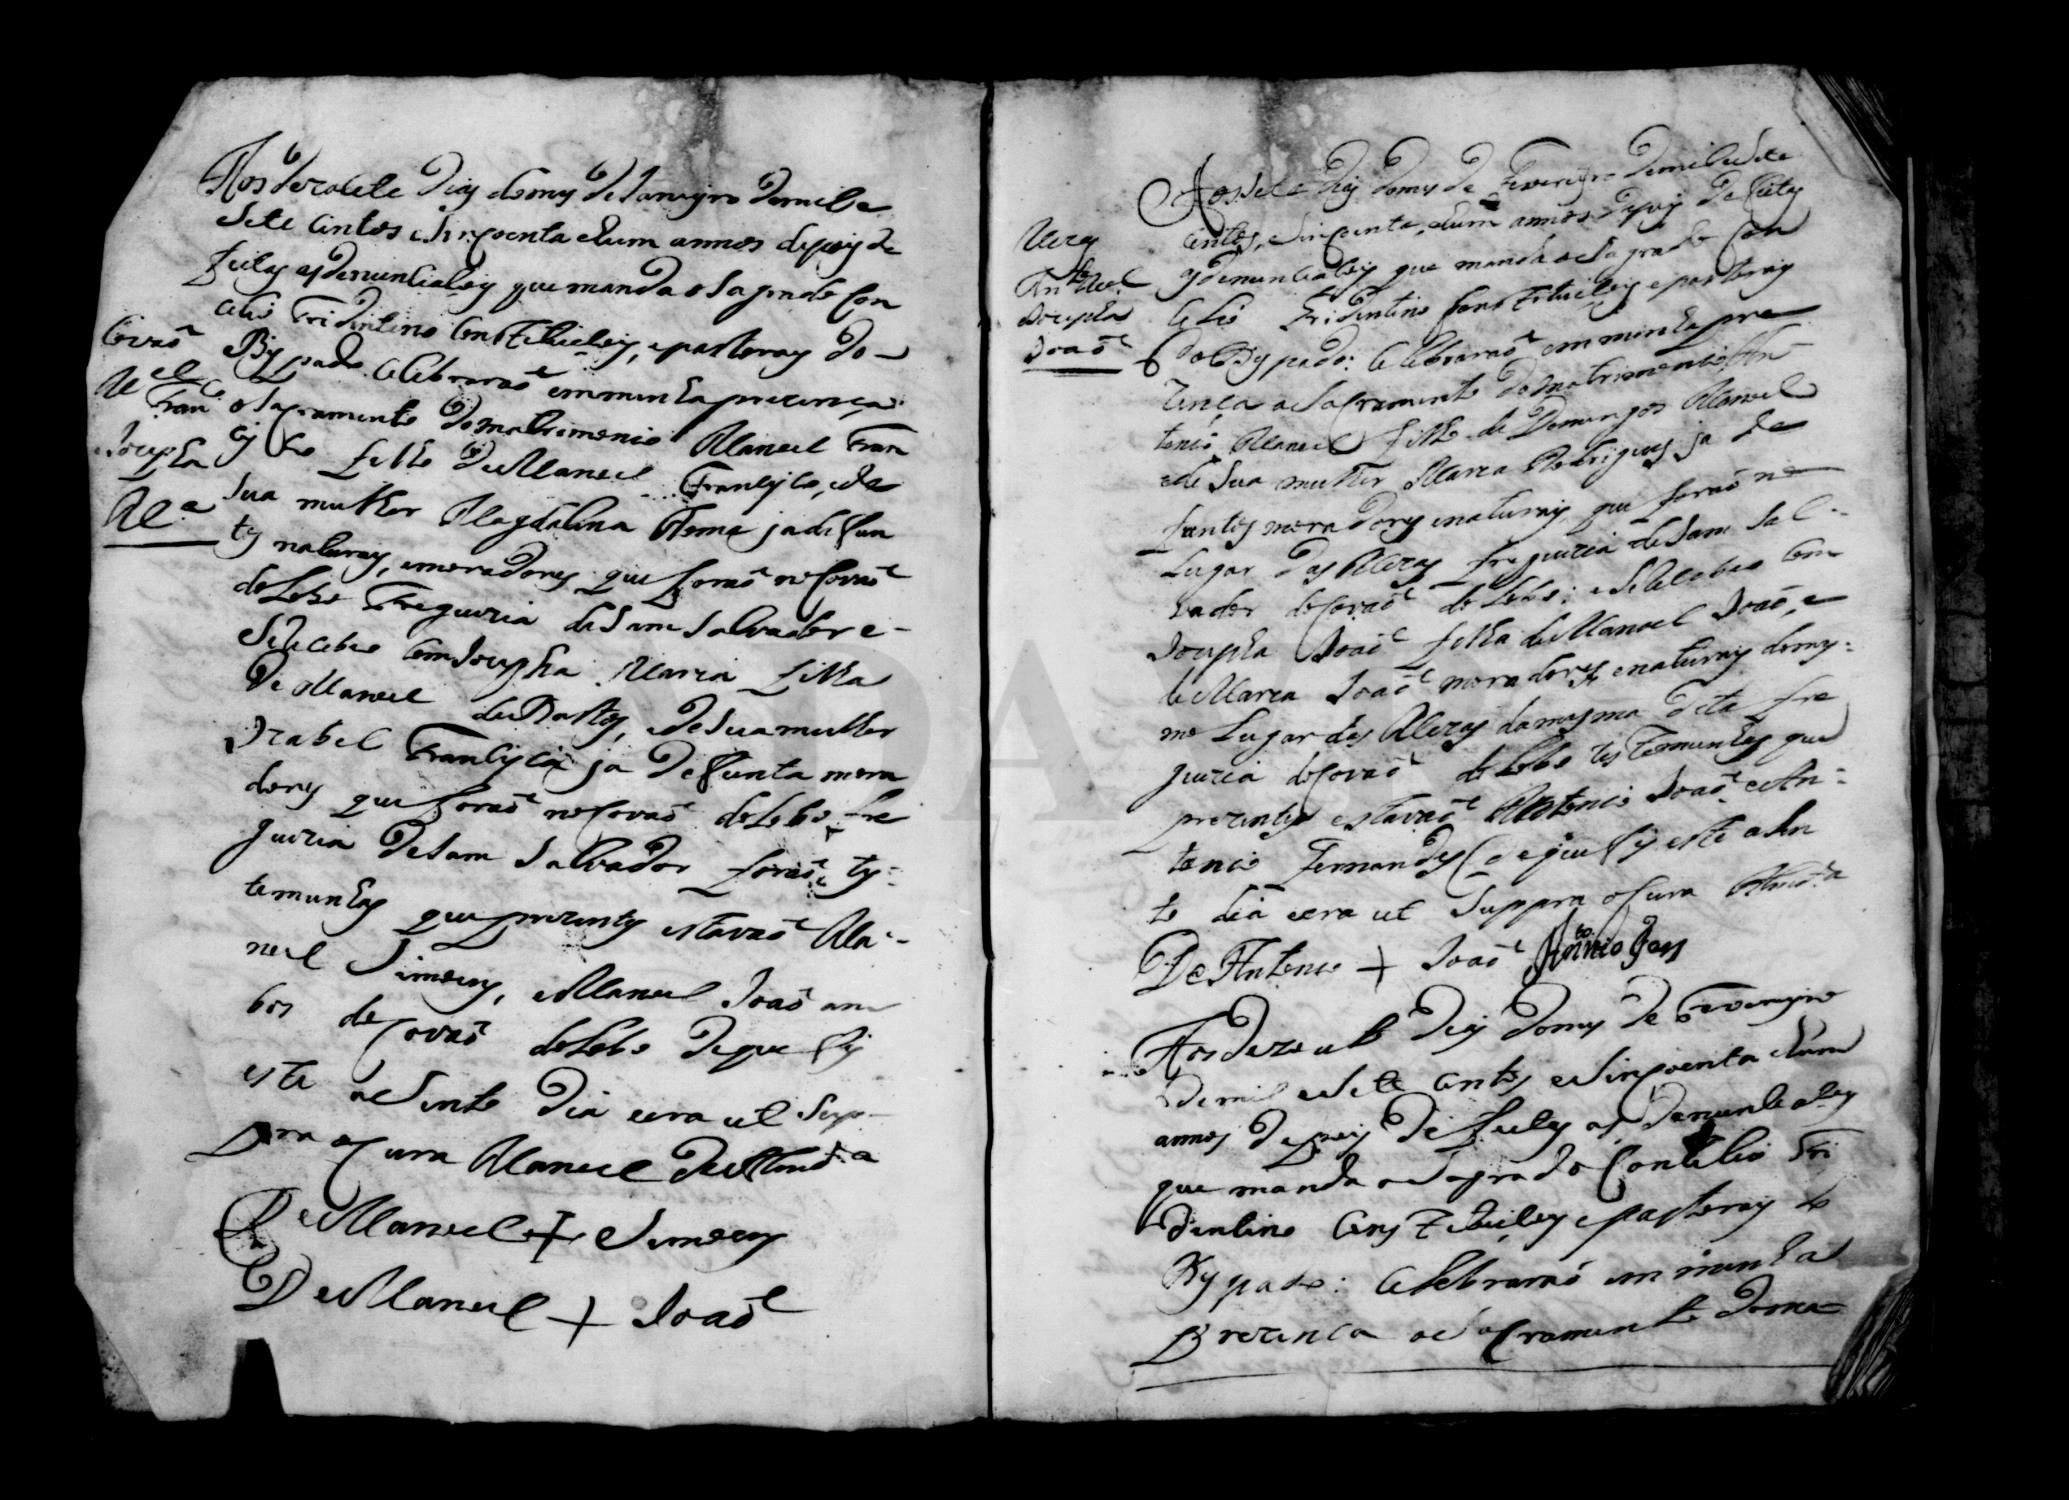 Aos dezasete dias do mes de Janeiro de mil e
Sete centos e sincoenta e hum annos depois de
feitas as denunciaçois que manda o Sagrado Con
cilio Tridintino Constituiçois, e pastorais do
Covaõ
Bispado. Celebraraõ em minha prezença
M.el
Fran.co
o Sacramento do matrimonio Manuel Fran
Jozepha
cisco filho de Manuel Francisco, e de
M.a
Sua mulher Magdalina ja defun
tos naturais, e moradores que foraõ no Covaõ
do Lobo Freguezia de Sam Salvador e
Selebrou com Jozepha Maria filha
de Manuel de Bastos, e de sua mulher
Izabel Francisca ja defunta mora
dores que foraõ no Covaõ do Lobo fre
guezia de Sam Salvador foraõ tes
temunhas que prezentes estavaõ Ma
nuel Simois, e Manuel Joaõ am
bos de Covaõ do Lobo de que fis
este asento dia e era ut Sup
pra o Cura Manuel de Almd.a
De Manuel + Simois
De Manuel + Joaõ
Aos sete dias do mes de Fevereiro de mil e sete
centos, e sincoenta, e hum annos depois de feitas
Mezas
as denunciaçois que manda o Sagrado Con
Ant.o M.el
cilio Tridintino Constituiçois e pastorais
Jozepha
do Bispado: Celebraraõ em minha pre
Joaõ
zença o Sacramento do matrimonio An
tonio Manuel filho de Domingos Manuel
e de Sua mulher Maria Rodrigues ja de
funtos moradores e naturais que foraõ no
Lugar das Mezas freguezia de Sam Sal
vador do Covaõ do Lobo; e Selebrou com
Jozepha Joaõ filha de Manoel Joaõ, e
de Maria Joaõ moradores e naturais do mes
mo Lugar das Mezas da mesma dita fre
guezia do Covaõ do Lobo testemunhas que
prezentes estavaõ Antonio Joaõ e An
tonio Fernandes de que fis este asin
to dia e era ut Suppra o Cura Almd.a
De Antonio + Joaõ Antonio
Aos dezouto dias do mes de Fevereiro
de mil e sete centos e sincoenta e hum
annos depois de feitas as denunciaçois
que manda o Sagrado Concilio Tri
dintino Constituiçois e pastorais do
Bispado: Celebraraõ em minha
Prezenca o Sacramento do ma